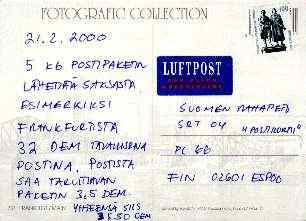 FOTOGRAFIC COLLECTION
21.2.2000
5 KG POSTIPAKETIN
LÄHETTÄÄ SAKSASTA
ESIMERKIKSI
FRANKFURTISTA
32 DEM TAVALLISENA
POSTINA. POSTISTA
SAA TARVITTAVAN
PAKETIN 3,5 DEM.
YHTEENSÄ SIIS
35.50 DEM
LUFTPOST
SUOMEN MAHAPED
SRT 04 "POSTIRORTTI"
PL 66
FIN 02601 ESPOO